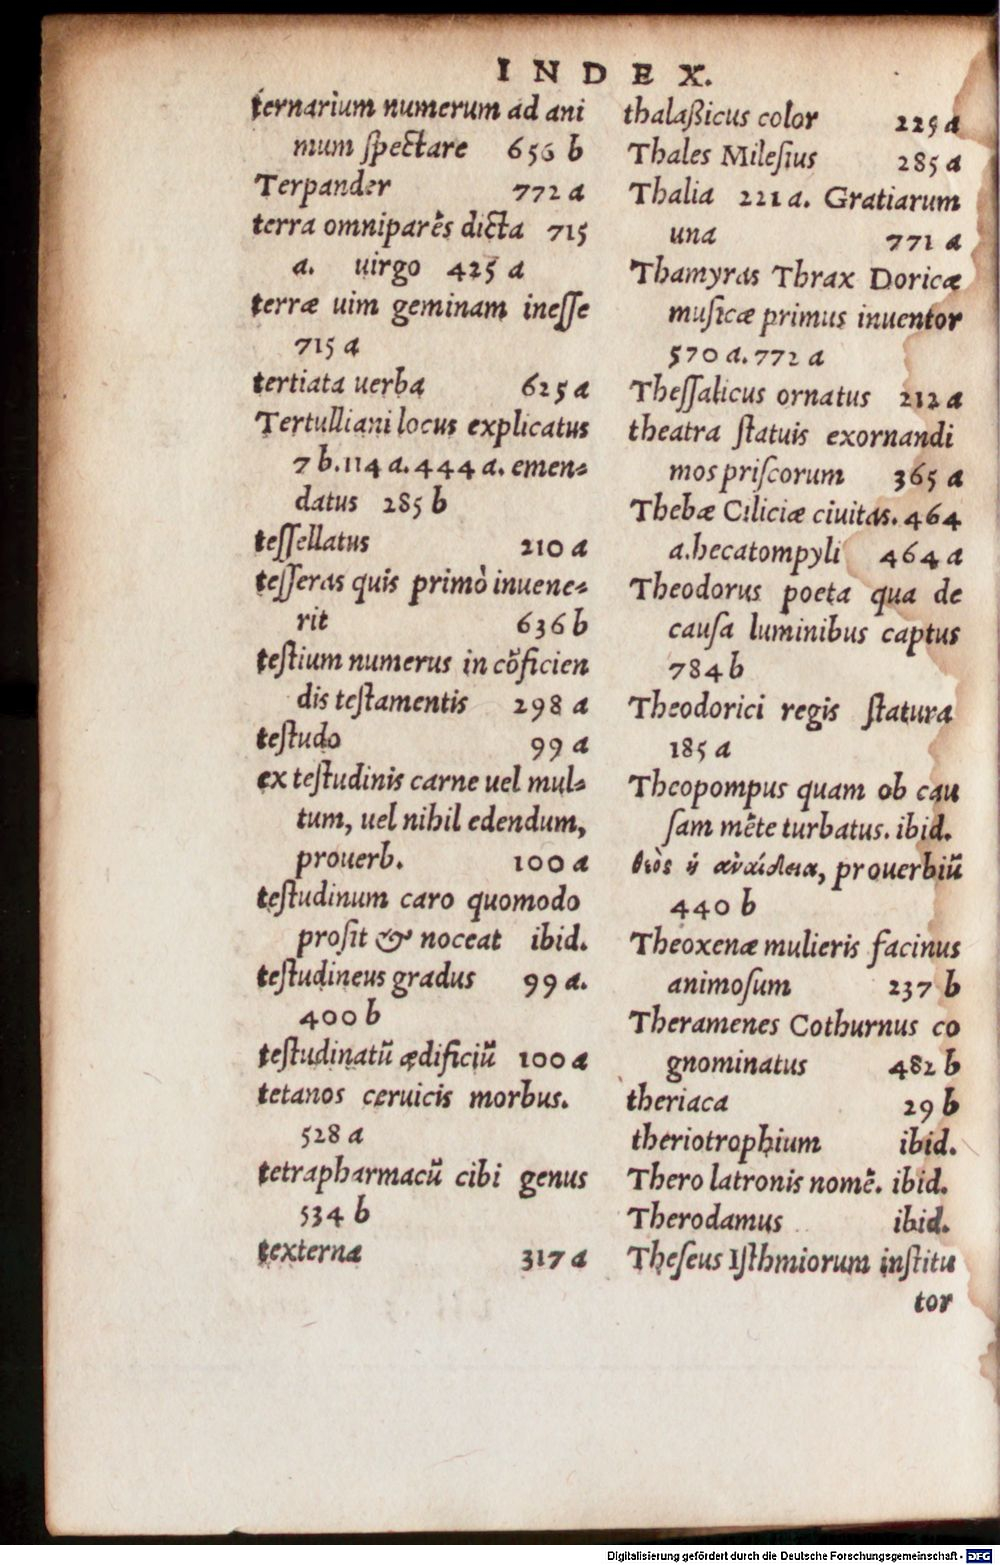 INDEX.
ternarium numerum ad ani
mum spectare 656 b
Terpander 772 a
terra omniparēs dicta 715
a. uirgo 425 a
terræ uim geminam inesse
715 a
tertiata uerba 625 a
Tertulliani locus explicatus
7 b. 114 a. 444 a. emen-
datus 285 b
tessellatus 210 a
tesseras quis primò inuene-
rit 636 b
testium numerus in cõficien
dis testamentis 298 a
testudo 99 a
ex testudinis carne uel mul-
tum, uel nihil edendum,
prouerb. 100 a
testudinum caro quomodo
prosit & noceat ibid.
testudineus gradus 99 a.
400 b
testudinatũ ædificiũ 100 a
tetanos ceruicis morbus.
528 a
tetrapharmacũ cibi genus
534 b
texterna 317 a
thalaßicus color 225 a
Thales Milesius 285 a
Thalia 221 a. Gratiarum
una 771 a
Thamyras Thrax Doricæ
musicæ primus inuentor
570 a. 772 a
Thessalicus ornatus 212 a
theatra statuis exornandi
mos priscorum 365 a
Thebæ Ciliciæ ciuitas. 464
a. hecatompyli 464 a
Theodorus poeta qua de
causa luminibus captus
784 b
Theodorici regis statura
185 a
Theopompus quam ob cau
sam mēte turbatus. ibid.
θεὸς ἡ ἀναίδεια, prouerbiũ
440 b
Theoxenæ mulieris facinus
animosum 237 b
Theramenes Cothurnus co
gnominatus 482 b
theriaca 29 b
theriotrophium ibid.
Thero latronis nomē. ibid.
Therodamus ibid.
Theseus Isthmiorum institu
tor
Digitalisierung gefördert durch die Deutsche Forschungsgemeinschaft - DFG